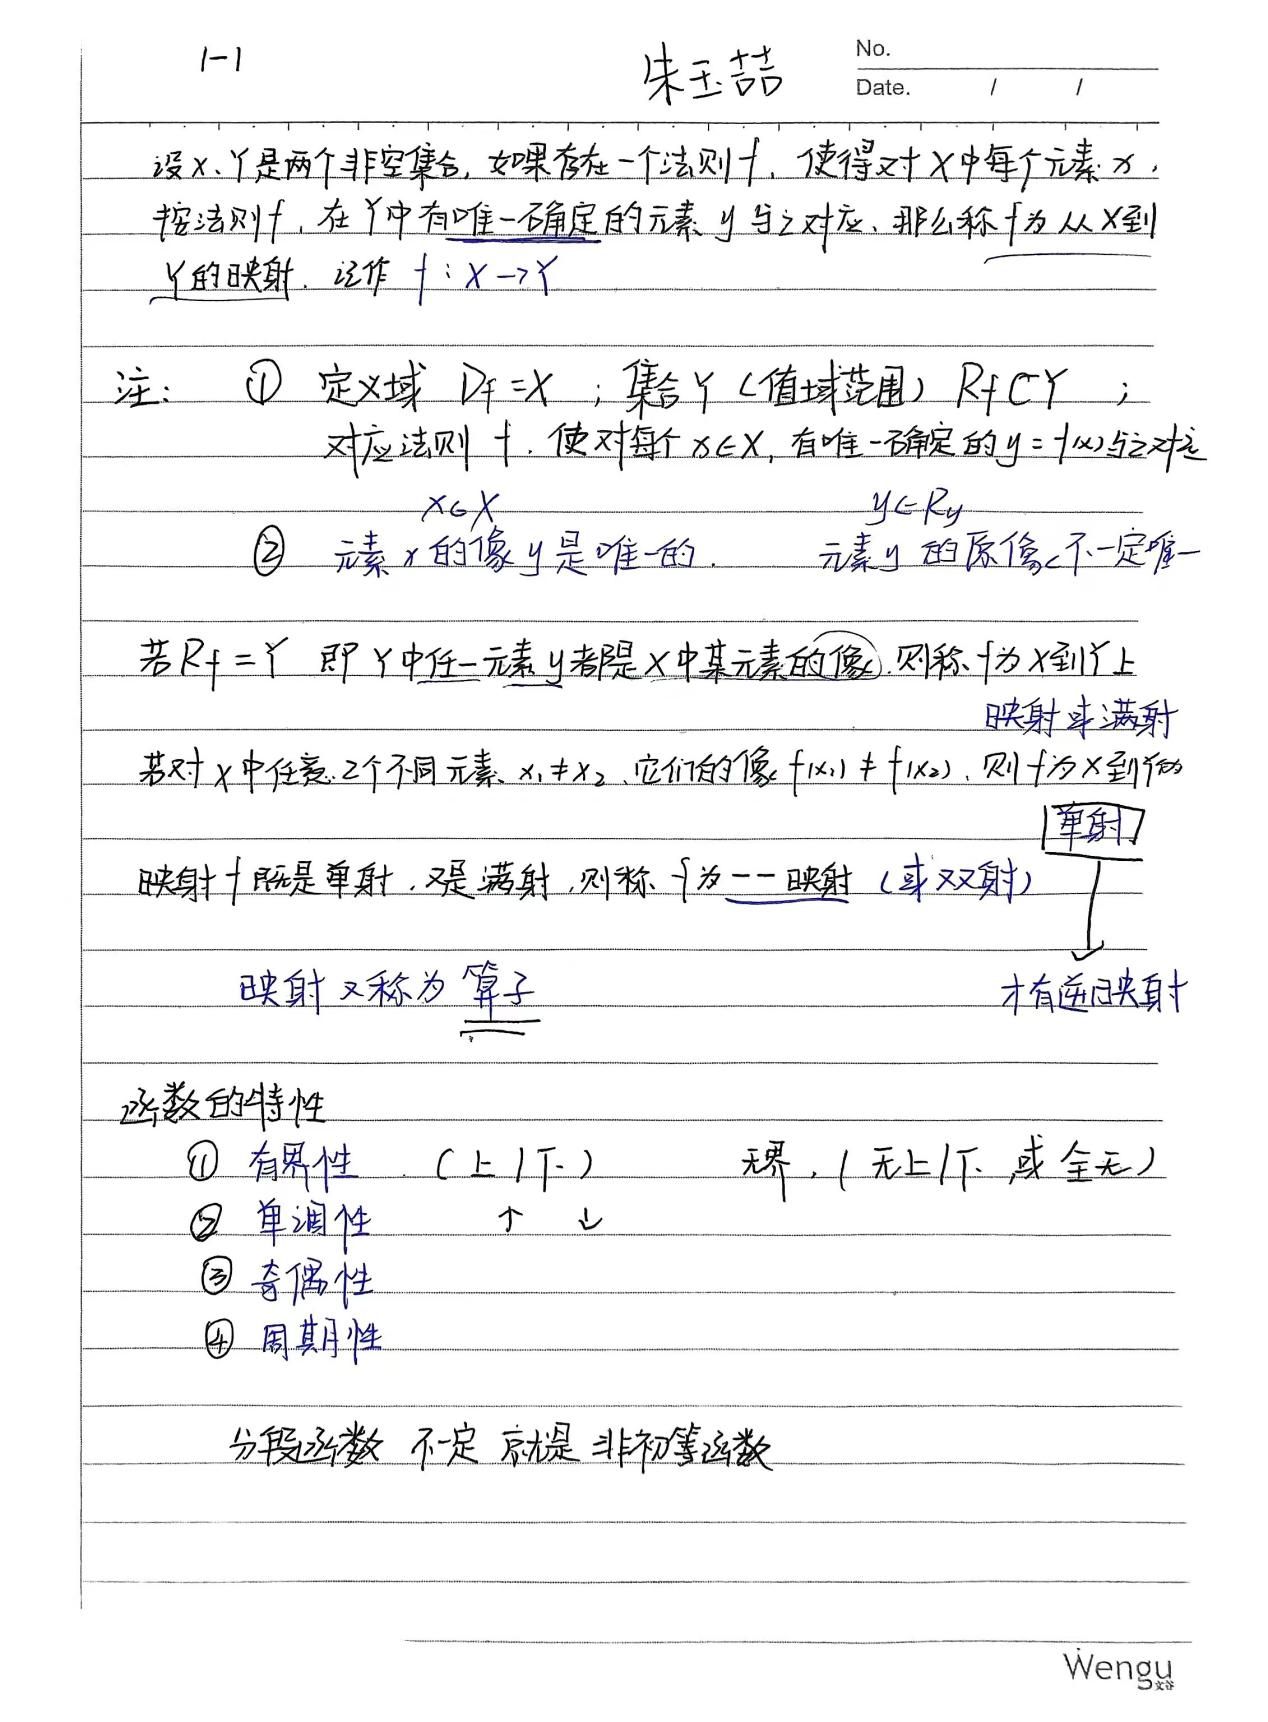 1-1
朱玉喆
No.
Date. / /
设X、Y是两个非空集合,如果存在一个法则f,使得对X中每个元素x,
按法则f,在Y中有唯一确定的元素y与之对应、那么称f为从X到
Y的映射.记作 f:X→Y
注: ① 定义域 Df=X ;集合Y(值域范围) Rf⊂Y ;
对应法则f.使对每个x∈X,有唯一确定的y=f(x)与之对应
x∈X y∈Ry
② 元素x的像y是唯一的. 元素y的原像不一定唯一
若Rf=Y 即Y中任一元素y都是X中某元素的像.则称f为X到Y上
映射或满射
若对X中任意2个不同元素x₁≠x₂、它们的像f(x₁)≠f(x₂)、则f为X到Y的
单射
映射f既是单射,又是满射,则称f为一一映射(或双射)
映射又称为算子
才有逆映射
函数的特性
① 有界性 (上/下) 无界,(无上/下 或全无)
② 单调性 ↑ ↓
③ 奇偶性
④ 周期性
分段函数 不一定 就是 非初等函数
Wengu
文谷